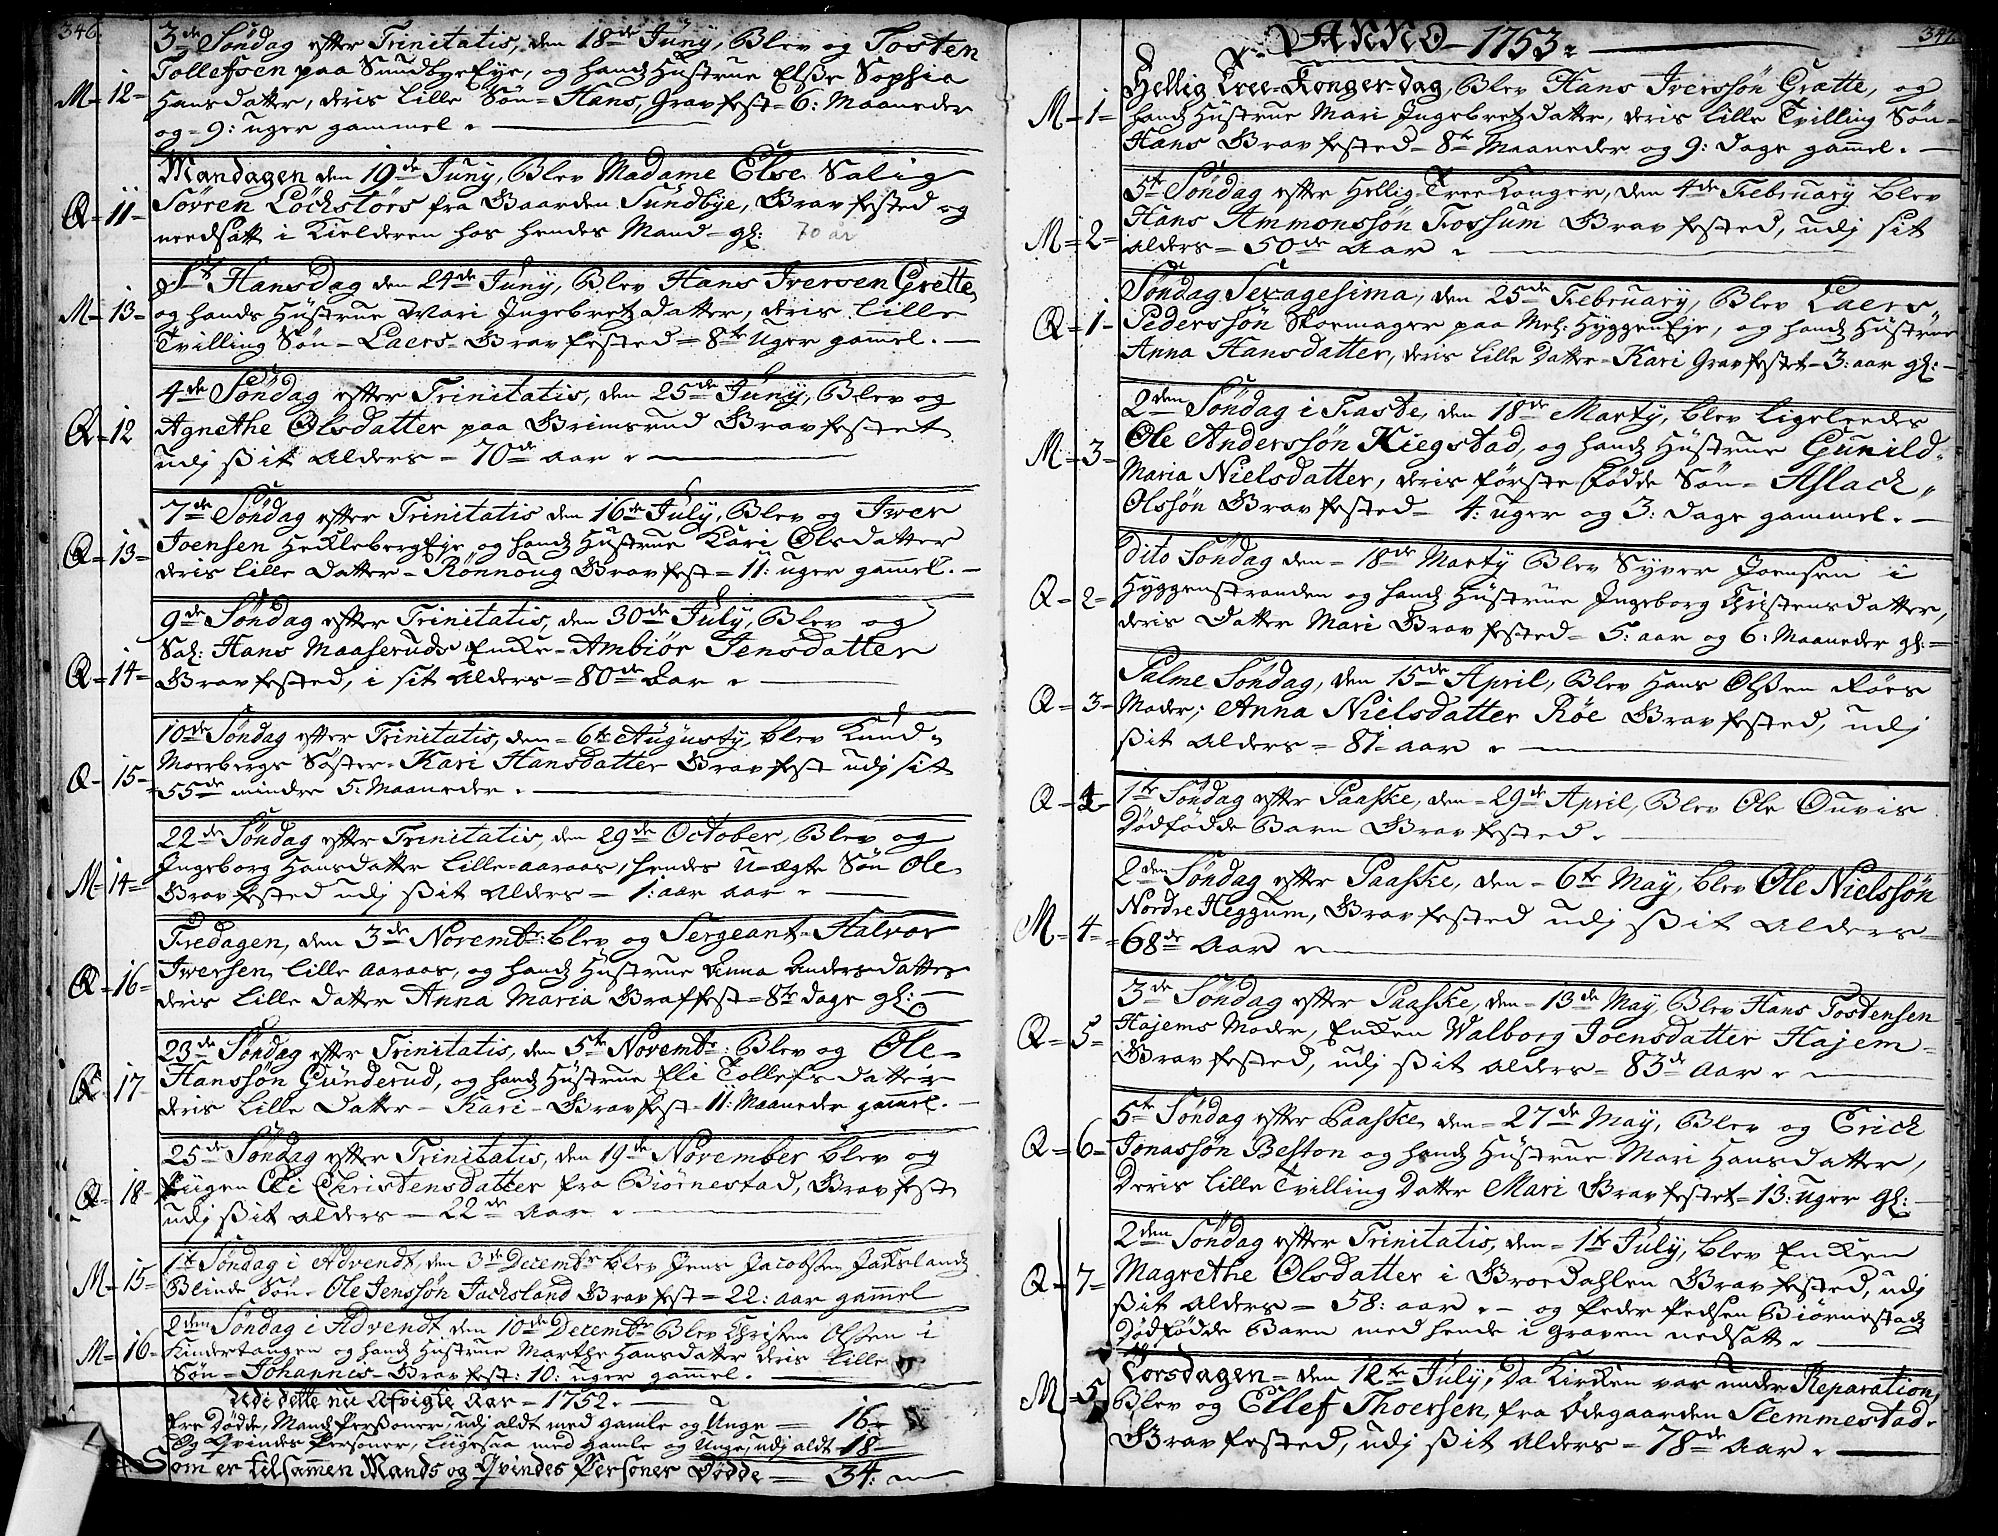 346.
3de Søndag efter Trinitatis, den 18de Juny, Blev og Tosten
Tollefsen paa SundbyeEye, og hands Hustrue Elsse Sophia
M=12= Hansdatter, deris lille Søn=Hans, Gravfest=6: Maaneder
og=9: uger gammel.
Mandagen den 19de Juny, Blev Madame Else Salig
Q=11= Sørren Lochstørs fra Gaarden Sundbye, Gravfested og
needsatt i Kielderen hos hendes Mand=gl: 70 år
St Hansdag den 24de Juny, Blev Hans Iversen Grette,
M=13= og hands Hustrue Mari Ingebretzdatter, deris lille
Tvilling Søn=Laers=Gravfested=8te Uger gammel.
4de Søndag efter Trinitatis, den 25de Juny, Blev og
Q=12 Agnethe Olsdatter paa Grimsrud Gravfestet
udj ssit Alders=70de aar
7de Søndag efter Trinitatis den 16de July, Blev og Iver
Q=13= Joensen HecklebergEye og hands Hustrue Kari Olsdatter
deris lille Datter=Rønnoug Gravfest=11: uger gammel.
9de Søndag efter Trinitatis, den 30de July, Blev og
Q=14= Sal: Hans Maaseruds Encke=Ambiør Jensdatter
Gravfested, i sit Alders=80de Aar
10de Søndag efter Trinitatis, den=6te Augusty, blev Knud
Q=15= Moerbergs Søster=Kari Hansdatter Gravfest udj sit
55de mindre 5: Maaneder.
22de Søndag efter Trinitatis, den 29de October, Blev og
M=14= Ingeborg Hansdatter Lille=aaraas, hendes U=ægte Søn Ole
Gravfested udj ssit Alders=1: aar aar.
Fredagen, den 3de Novembr: blev og Sergeant=Halvor
Q=16= Iversen, lille Aaraas, og hands Hustrue Anna Andersdatter
deris lille datter Anna Maria Graffest=8te dage gl:
23de Søndag efter Trinitatis, den 5te Novembr: Blev og Ole
Q=17= Hanssøn Gunderud, og hands Hustrue Eli Tollefsdatter
deris lille Datter=Kari=Gravfest=11: Maaneder gammel.
25de Søndag efter Trinitatis, den 19de November blev og
Q=18= Piigen Eli Christensdatter fra Biørnestad, Gravfest
udj ssit alders=22de Aar
1te Søndag i Advendt, den 3de Decembr blev Jens Jacobsen
M=15= Blinde Søn=Ole Jenssøn Jachsland Gravfest=22: aar gammel
2den Søndag i Advendt den 10de Decembr Blev Christen Olsen i
M=16= Kindertangen og hands Hustrue Marthe Hansdatter deris lille
Søn=Johannes=Gravfest: 10: uger gammel.
Udi dette nu Afvigte Aar=1752.
Ere Dødde, Mands Personer, udj aldt med gamle og Unge = 16
Og Qvindes Personer, ligesaa med gamle og Unge, udj aldt=18
Som er tilsammen Mands og Qvindes Personer Dødde = 34:
347
ANNO 1753
Hellig Tree=Konger=dag, Blev Hans Iverssøn Grætte, og
M=1= hands Hustrue Mari Ingebretzdatter, deris lille Tvilling Søn=
Hans Gravfested=8te Maaneder og 9: dage gammel.
5te Søndag efter Hellig=Tree Konger, den 4de February blev
M=2= Hans Ammonssøn Fossum Gravfested, udj sit
alders=50de Aar
Søndag Sexagesima, den 25de February, Blev Laers
Q=1= Pederssøn Skoemager paa HyggenEje, og hands Hustrue
Anna Hansdatter, deris lille datter=Kari Gravfestet=3: aar gl:
2den Søndag i Faste, den 18de Marty, blev ligeleedes
M=3= Ole Anderssøn Kiegstad, og hands Hustrue Gunild
Maria Nielsdatter, deris første fødde Søn=Aslach
Olssøn Gravfested=4: uger og 3: Dage gammel.
Dito Søndag den=18de Marty Blev Syver Joensen i
Q=2= Hyggenstranden og hands Hustrue Ingeborg Christensdatter,
deris Datter Mari Gravfested=5: aar og 6: Maaneder gl:
Palme Søndag, den 15de April, Blev Hans Olssen Røes
Q=3= Moder; Anna Nielsdatter Røe Gravfested, udj
ssit Alders=81=aar
Q=4= 1te Søndag efter Paasske, den=29de April, Blev Ole Ouvis
Dødfødde Barn Gravfested.
2den Søndag efter Paasske, den=6te May, blev Ole Nielssøn
M=4= Nordre Heggum, Gravfested udj ssit Alders
68de Aar
3de Søndag efter Paasske, den=13de May, Blev Hans Tostensen
Q=5= Hajems Moder, Encken Walborg Joensdatter Hajem=
Gravfested, udj ssit Alders=83de Aar
5te Søndag efter Paasske, den=27de May, Blev og Erich
Q=6= Jonassøn Beston og hands Hustrue Mari Hansdatter,
Deris lille Tvilling Datter Mari Gravfestet=13: uger gl:
2den Søndag efter Trinitatis, den=1te July, blev Encken
Q=7= Magrethe Olsdatter i Groedahlen Gravfested, udj
ssit Alders=58: aar = og Peder Pedsen Biørnestads
Dødfødde Barn med hende i Graven nedsatt.
Torsdagen=den 12te July, Da Kircken var under Reparation,
M=5 Blev og Ellef Thoersen fra Ødegaarden Slemmestad
Gravfested, udj ssit Alders=78de Aar